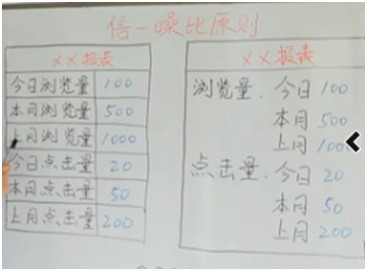 倍-噪比原则
××报表
今日浏览量 100
本月浏览量 500
上月浏览量 1000
今日点击量 20
本月点击量 50
上月点击量 200
××报表
浏览量.今日 100
本月 500
上月 100
点击量.今日 20
本月 50
上月 200